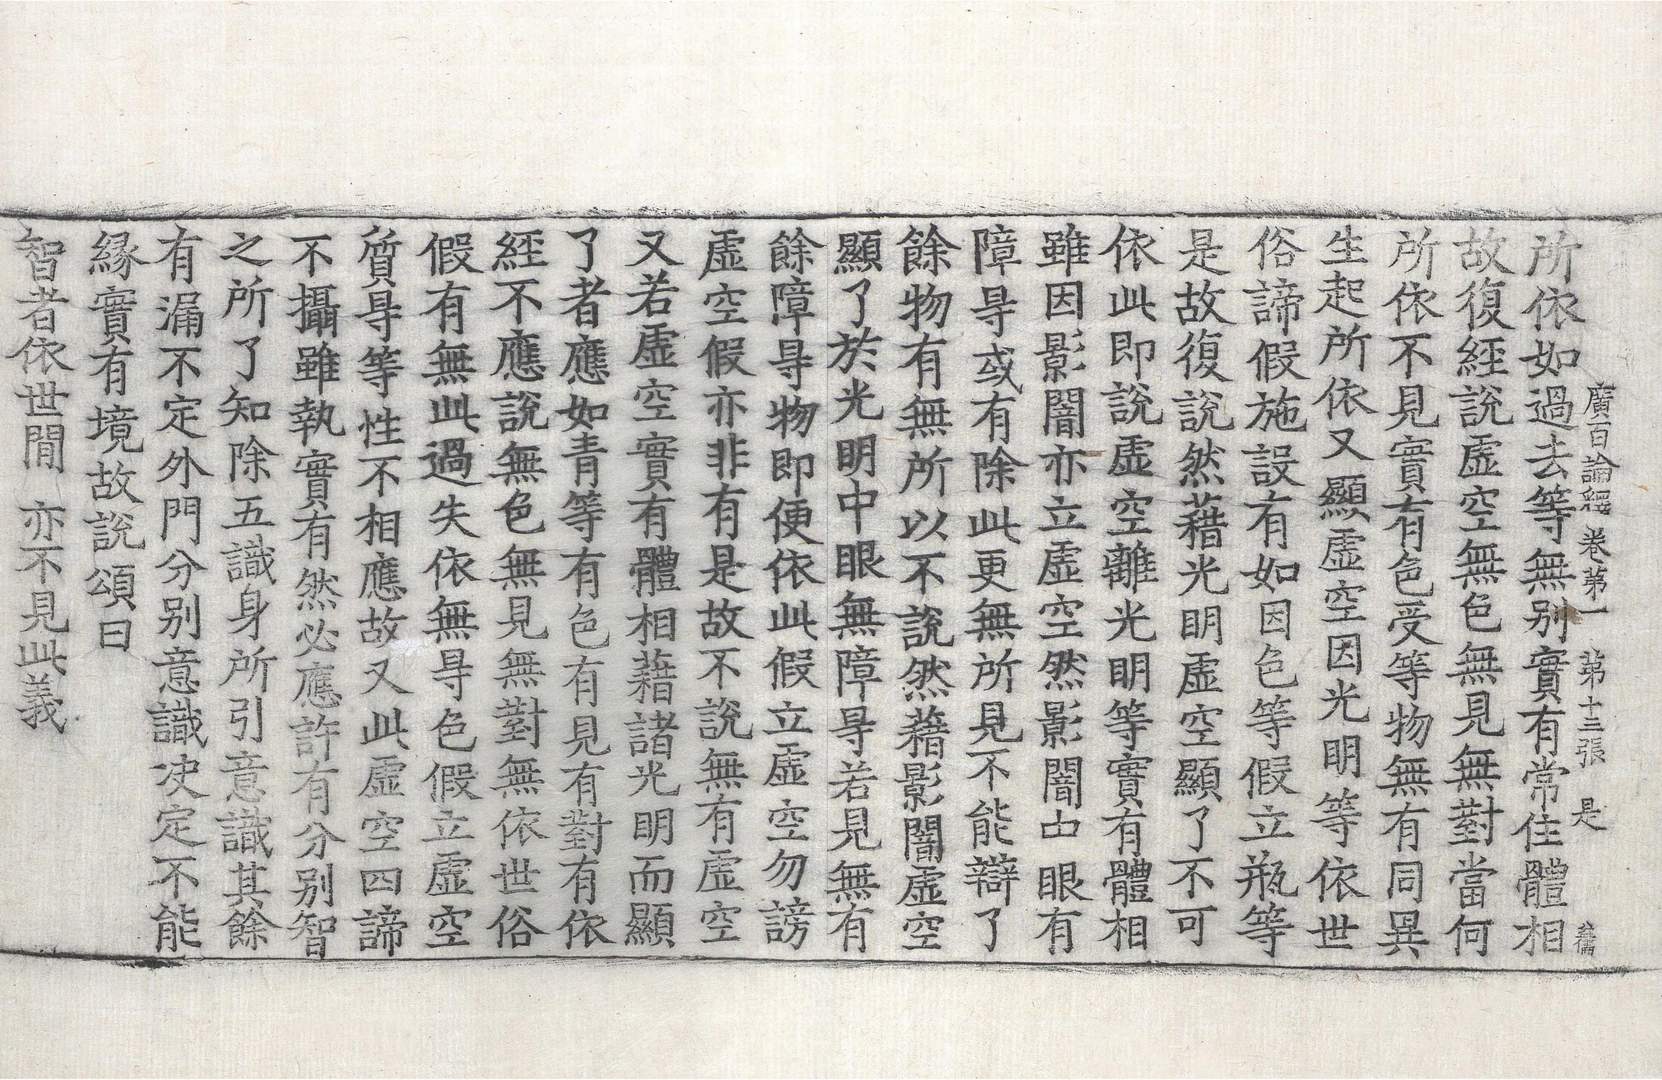 廣百論經 卷第一 第十三張 是
所依如過去等無別實有常住體相
故復經說虛空無色無見無對當何
所依不見實有色受等物無有同異
生起所依又顯虛空因光明等依世
俗諦假施設有如因色等假立甁等
是故復說然藉光明虛空顯了不可
依此即說虛空離光明等實有體相
雖因影闇亦立虛空然影闇中眼有
障㝵或有除此更無所見不能辯了
餘物有無所以不說然藉影闇虛空
顯了於光明中眼無障㝵若見無有
餘障㝵物即便依此假立虛空勿謗
虛空假亦非有是故不說無有虛空
又若虛空實有體相藉諸光明而顯
了者應如青等有色有見有對有依
經不應說無色無見無對無依世俗
假有無此過失依無㝵色假立虛空
質㝵等性不相應故又此虛空四諦
不攝雖執實有然必應許有分別智
之所了知除五識身所引意識其餘
有漏不定外門分別意識決定不能
緣實有境故說頌曰
智者依世間 亦不見此義